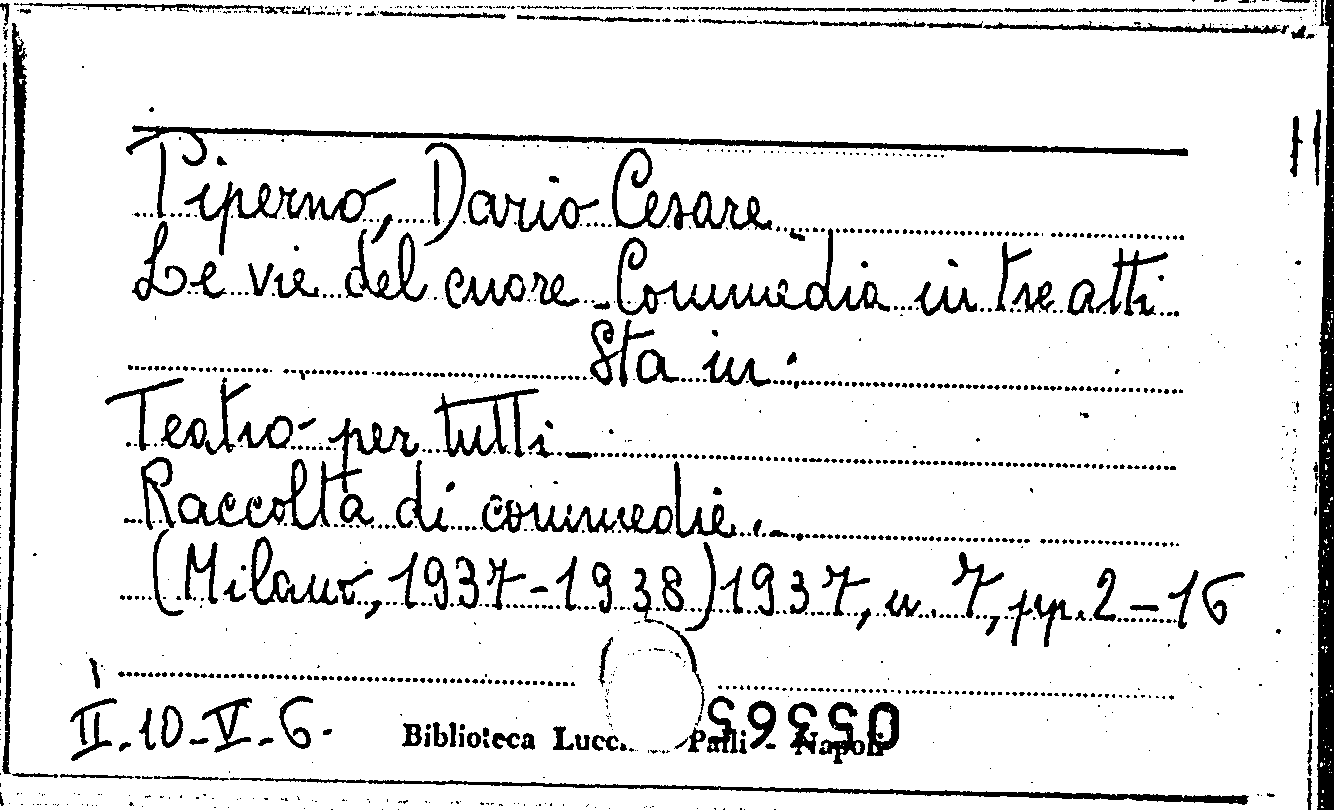 Piperno, Dario Cesare_
Le vie del cuore_Commedia in tre atti
Sta in:
Teatro per tutti_
Raccolta di commedie._
(Milano, 1937-1938) 1937, n. 7, pp. 2-16
II.10-V-6.
Biblioteca Lucc. Palli - Napoli